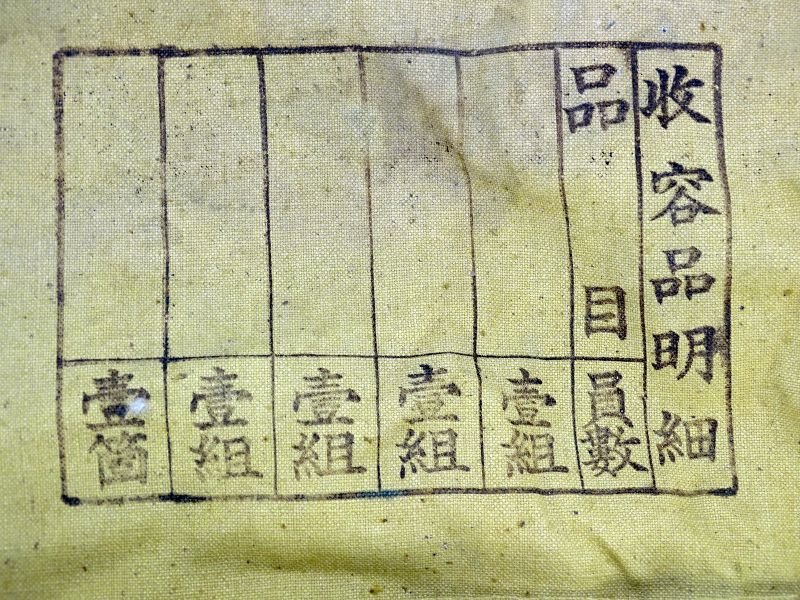 收容品明細
品目
員數
壹組
壹組
壹組
壹組
壹箇